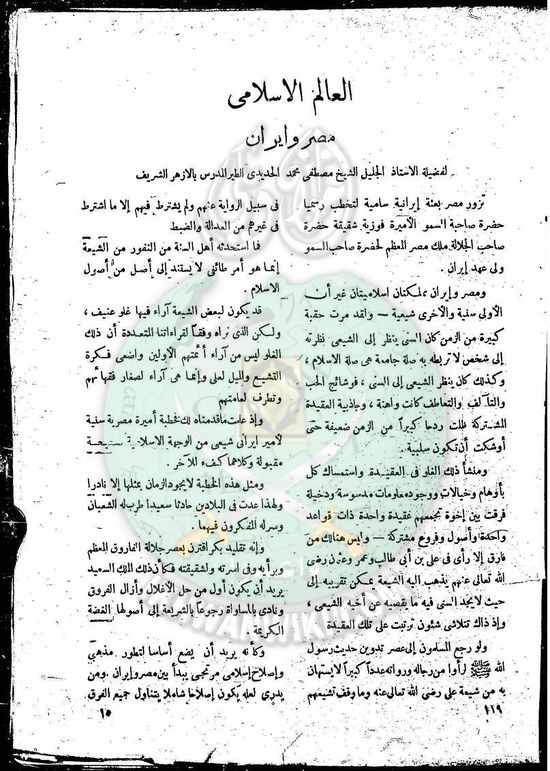 العالم الاسلامى
مصر وايران
لفضيلة الاستاذ الجليل الشيخ مصطفى محمد الحديدى الطير المدرس بالازهر الشريف
تزور مصر بعثة إيرانية سامية لتخطب رسميا
حضرة صاحبة السمو الأميرة فوزية شقيقة حضرة
صاحب الجلالة ملك مصر المعظم لحضرة صاحب السمو
ولى عهد إيران .
ومصر وإيران مملكتان اسلاميتان غير أن
الأولى سنية والأخرى شيعية — ولقد مرت حقبة
كبيرة من الزمن كان السنى ينظر إلى الشيعى نظرته
إلى شخص لا تربطه به صلة جامعة هى صلة الاسلام ،
وكذلك كان ينظر الشيعى إلى السنى ، فوشائج الحب
والتآلف والتعاطف كانت واهنة ، وجاذبية العقيدة
المشتركة ظلت ردحا كبيراً من الزمن ضعيفة حتى
أوشكت أن تكون سلبية .
ومنشأ ذلك الغلو فى العقيدة واستمساك كل
بأوهام وخيالات ووجود معلومات مدسوسة ودخيلة
فرقت بين إخوة تجمعهم عقيدة واحدة ذات قواعد
واحدة وأصول وفروع مشتركة — وليس هنالك من
فارق إلا رأى فى على بن أبى طالب وعمر وعثمان رضى
الله تعالى عنهم يذهب اليه الشيعة يمكن تقريبه إلى
حيث لا يجد السنى فيه ما يقصيه عن أخيه الشيعى ،
وإذ ذاك تتلاشى شئون ترتبت على تلك العقيدة
ولو رجع المسلمون إلى عصر تدوين حديث رسول
الله ﷺ رأوا من رجاله ورواته عدداً كبيراً لا يستهان
به من شيعة على رضى الله تعالى عنه وما وقف تشيعهم
فى سبيل الرواية عنهم ولم يشترط فيهم إلا ما اشترط
فى غيرهم من العدالة والضبط
فما استحدثه أهل السنة من النفور من الشيعة
إنما هو أمر طائفى لا يستند إلى أصل من أصول
الاسلام .
قد يكون لبعض الشيعة آراء فيها غلو عنيف ،
ولكن الذى نراه وفقاً لقراءاتنا المتعددة أن ذلك
الغلو ليس من آراء أئمتهم الأولين واضعى فكرة
التشيع والميل لعلى وإنما هى آراء لصغار فقهائهم
وتطرف لعامتهم
وإذ علمت ما قدمناه لك فخطبة أميرة مصرية سنية
لأمير ايرانى شيعى من الوجهة الاسلامية صحيحة
مقبولة وكلاهما كفء للآخر .
ومثل هذه الخطبة لا يجود الزمان بمثلها إلا نادرا
ولهذا عدت فى البلادين حادثا سعيدا طرب له الشعبان
وسر له المفكرون فيهما .
وإنه تقليد بكر اقترن بعصر جلالة الفاروق المعظم
وبرأيه وفى اسرته ولشقيقته فكأن ذلك الملك السعيد
يريد أن يكون أول من حل الأغلال وأزال الفروق
ونادى بالمساواة رجوعاً بالشريعة إلى أصولها الغضة
الكريمة .
وكأنه يريد أن يضع أساسا لتطور مذهبى
وإصلاح إسلامى مرتجى يبدأ بين مصر وإيران ، ومن
يدرى لعله يكون إصلاحا شاملا يتناول جميع الفرق
١١٩
١٥